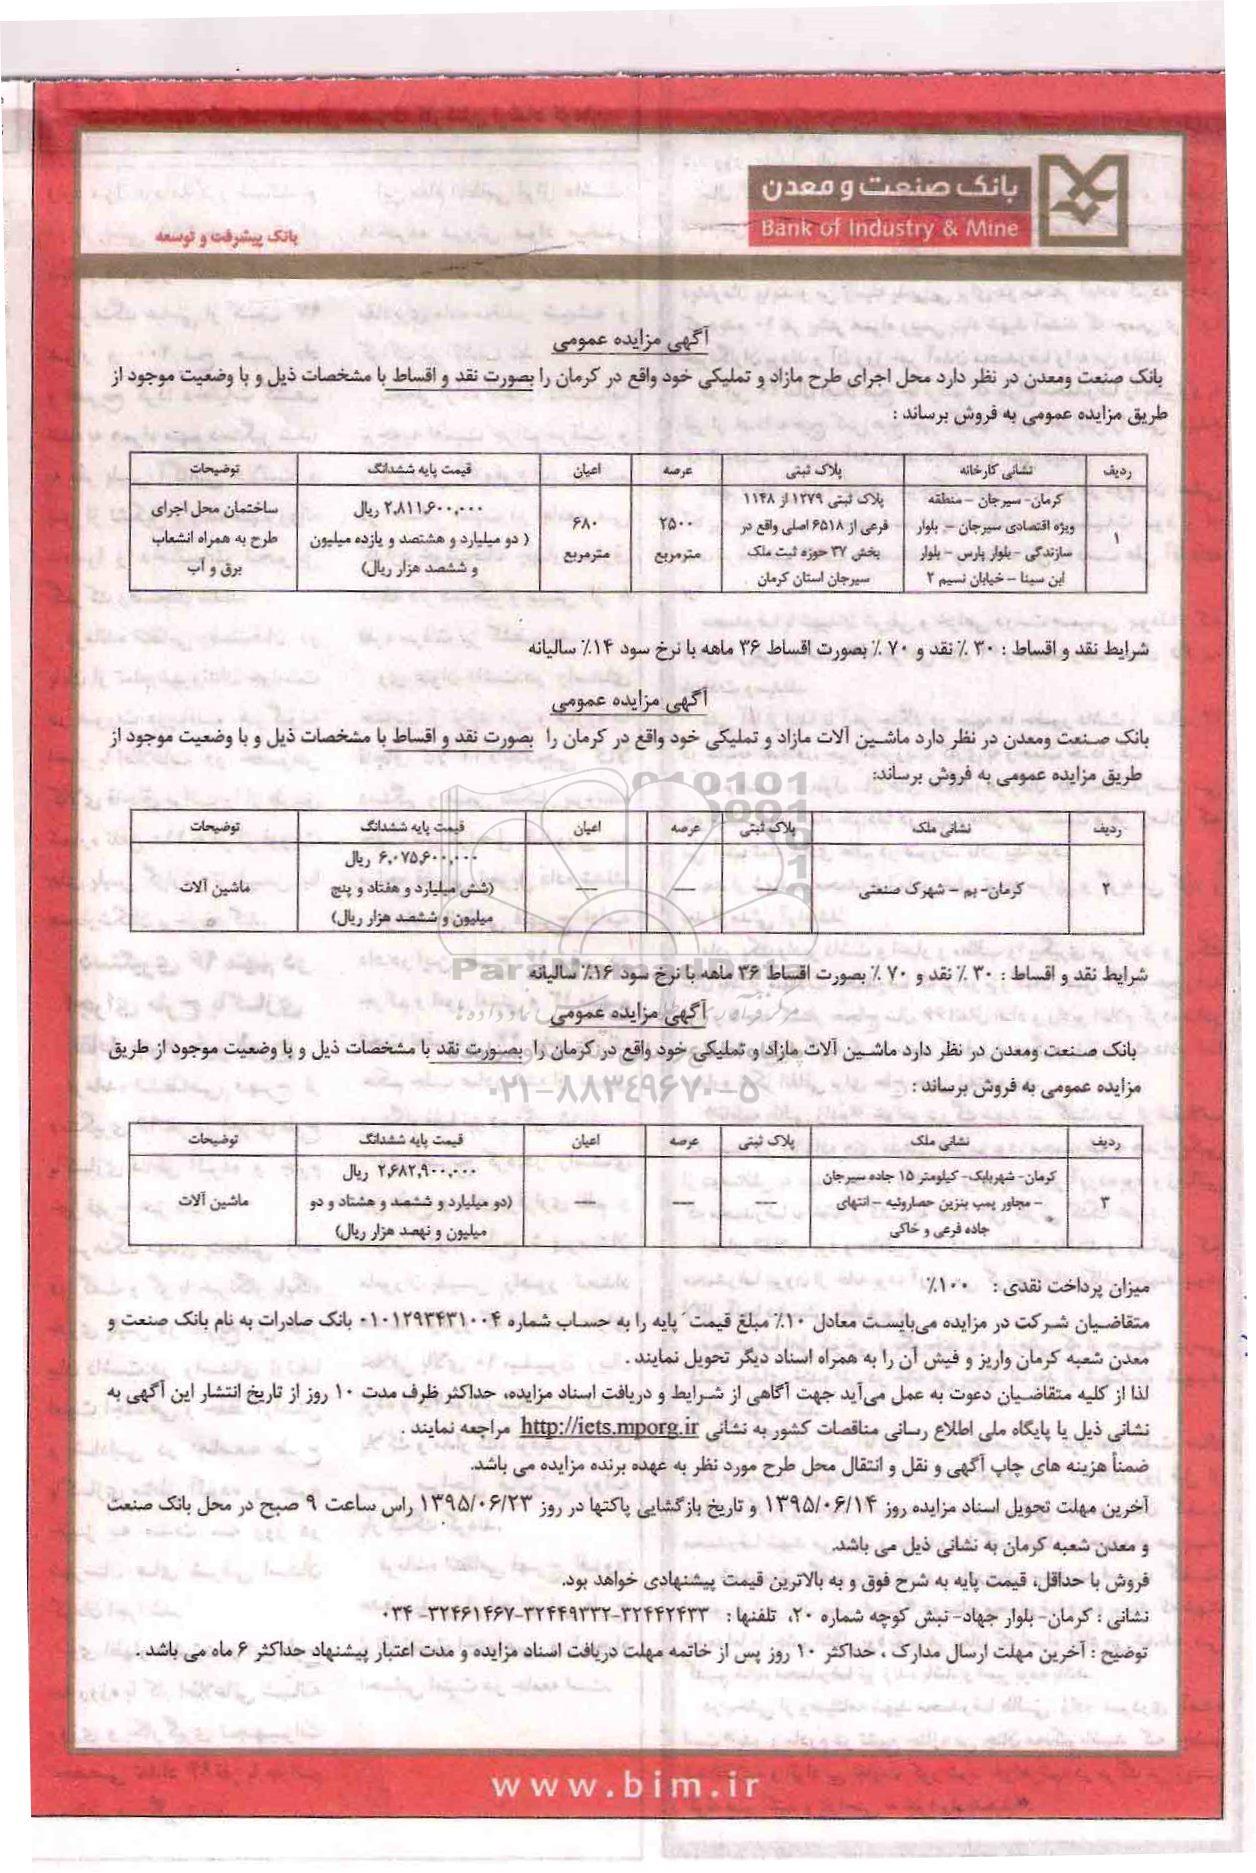 بانک صنعت و معدن
Bank of Industry & Mine
بانک پیشرفت و توسعه
آگهی مزایده عمومی
بانک صنعت ومعدن در نظر دارد محل اجرای طرح مازاد و تملیکی خود واقع در کرمان را بصورت نقد و اقساط با مشخصات ذیل و با وضعیت موجود از
طریق مزایده عمومی به فروش برساند :
ردیف نشانی کارخانه پلاک ثبتی عرصه اعیان قیمت پایه ششدانگ توضیحات
۱
کرمان- سیرجان – منطقه
ویژه اقتصادی سیرجان – بلوار
سازندگی – بلوار پارس – بلوار
ابن سینا – خیابان نسیم ۲
پلاک ثبتی ۱۲۷۹ از ۱۱۴۸
فرعی از ۶۵۱۸ اصلی واقع در
بخش ۳۷ حوزه ثبت ملک
سیرجان استان کرمان
۲۵۰۰
مترمربع
۶۸۰
مترمربع
۲,۸۱۱,۶۰۰,۰۰۰ ریال
( دو میلیارد و هشتصد و یازده میلیون
و ششصد هزار ریال)
ساختمان محل اجرای
طرح به همراه انشعاب
برق و آب
شرایط نقد و اقساط : ۳۰ ٪ نقد و ۷۰ ٪ بصورت اقساط ۳۶ ماهه با نرخ سود ۱۴٪ سالیانه
آگهی مزایده عمومی
بانک صنعت ومعدن در نظر دارد ماشین آلات مازاد و تملیکی خود واقع در کرمان را بصورت نقد و اقساط با مشخصات ذیل و با وضعیت موجود از
طریق مزایده عمومی به فروش برساند:
ردیف نشانی ملک پلاک ثبتی عرصه اعیان قیمت پایه ششدانگ توضیحات
۲
کرمان- بم – شهرک صنعتی
—
—
—
۶,۰۷۵,۶۰۰,۰۰۰ ریال
(شش میلیارد و هفتاد و پنج
میلیون و ششصد هزار ریال)
ماشین آلات
ParsNamadData
شرایط نقد و اقساط : ۳۰ ٪ نقد و ۷۰ ٪ بصورت اقساط ۳۶ ماهه با نرخ سود ۱۶٪ سالیانه
آگهی مزایده عمومی
بانک صنعت ومعدن در نظر دارد ماشین آلات مازاد و تملیکی خود واقع در کرمان را بصورت نقد با مشخصات ذیل و با وضعیت موجود از طریق
مزایده عمومی به فروش برساند :
۰۲۱-۸۸۳۴۹۶۷۰-۵
ردیف نشانی ملک پلاک ثبتی عرصه اعیان قیمت پایه ششدانگ توضیحات
۳
کرمان- شهربابک- کیلومتر ۱۵ جاده سیرجان
– مجاور پمپ بنزین حصاروئیه – انتهای
جاده فرعی و خاکی
—
—
—
۲,۶۸۲,۹۰۰,۰۰۰ ریال
(دو میلیارد و ششصد و هشتاد و دو
میلیون و نهصد هزار ریال)
ماشین آلات
میزان پرداخت نقدی : ۱۰۰٪
متقاضیان شرکت در مزایده می‌بایست معادل ۱۰٪ مبلغ قیمت پایه را به حساب شماره ۰۱۰۱۲۹۳۴۳۱۰۰۴ بانک صادرات به نام بانک صنعت و
معدن شعبه کرمان واریز و فیش آن را به همراه اسناد دیگر تحویل نمایند .
لذا از کلیه متقاضیان دعوت به عمل می‌آید جهت آگاهی از شرایط و دریافت اسناد مزایده، حداکثر ظرف مدت ۱۰ روز از تاریخ انتشار این آگهی به
نشانی ذیل یا پایگاه ملی اطلاع رسانی مناقصات کشور به نشانی http://iets.mporg.ir مراجعه نمایند .
ضمناً هزینه های چاپ آگهی و نقل و انتقال محل طرح مورد نظر به عهده برنده مزایده می باشد.
آخرین مهلت تحویل اسناد مزایده روز ۱۳۹۵/۰۶/۱۴ و تاریخ بازگشایی پاکتها در روز ۱۳۹۵/۰۶/۲۳ راس ساعت ۹ صبح در محل بانک صنعت
و معدن شعبه کرمان به نشانی ذیل می باشد.
فروش با حداقل، قیمت پایه به شرح فوق و به بالاترین قیمت پیشنهادی خواهد بود.
نشانی : کرمان- بلوار جهاد- نبش کوچه شماره ۲۰، تلفنها : ۳۲۴۴۲۴۳۳-۳۲۴۴۹۳۳۲-۳۲۴۶۱۴۶۷- ۰۳۴
توضیح : آخرین مهلت ارسال مدارک ، حداکثر ۱۰ روز پس از خاتمه مهلت دریافت اسناد مزایده و مدت اعتبار پیشنهاد حداکثر ۶ ماه می باشد .
www.bim.ir